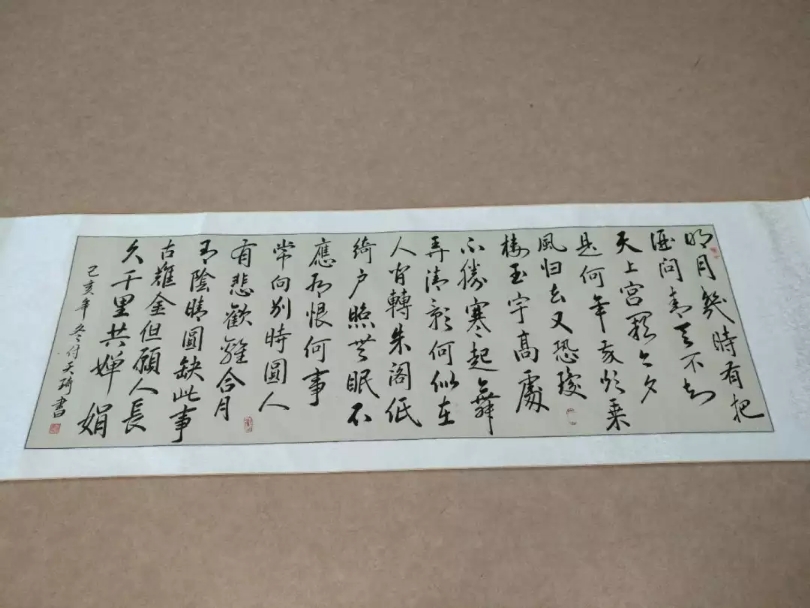 明月幾時有把
酒问青天不知
天上宫阙今夕
是何年我欲乘
風归去又恐瓊
楼玉宇高處
不勝寒起舞
弄清影何似在
人间轉朱阁低
绮户照無眠不
應有恨何事
常向别時圓人
有悲歡離合月
有陰晴圓缺此事
古難全但願人長
久千里共婵娟
己亥年冬付天琦書